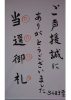 ご声援誠に
ありがとうございました
当選御礼